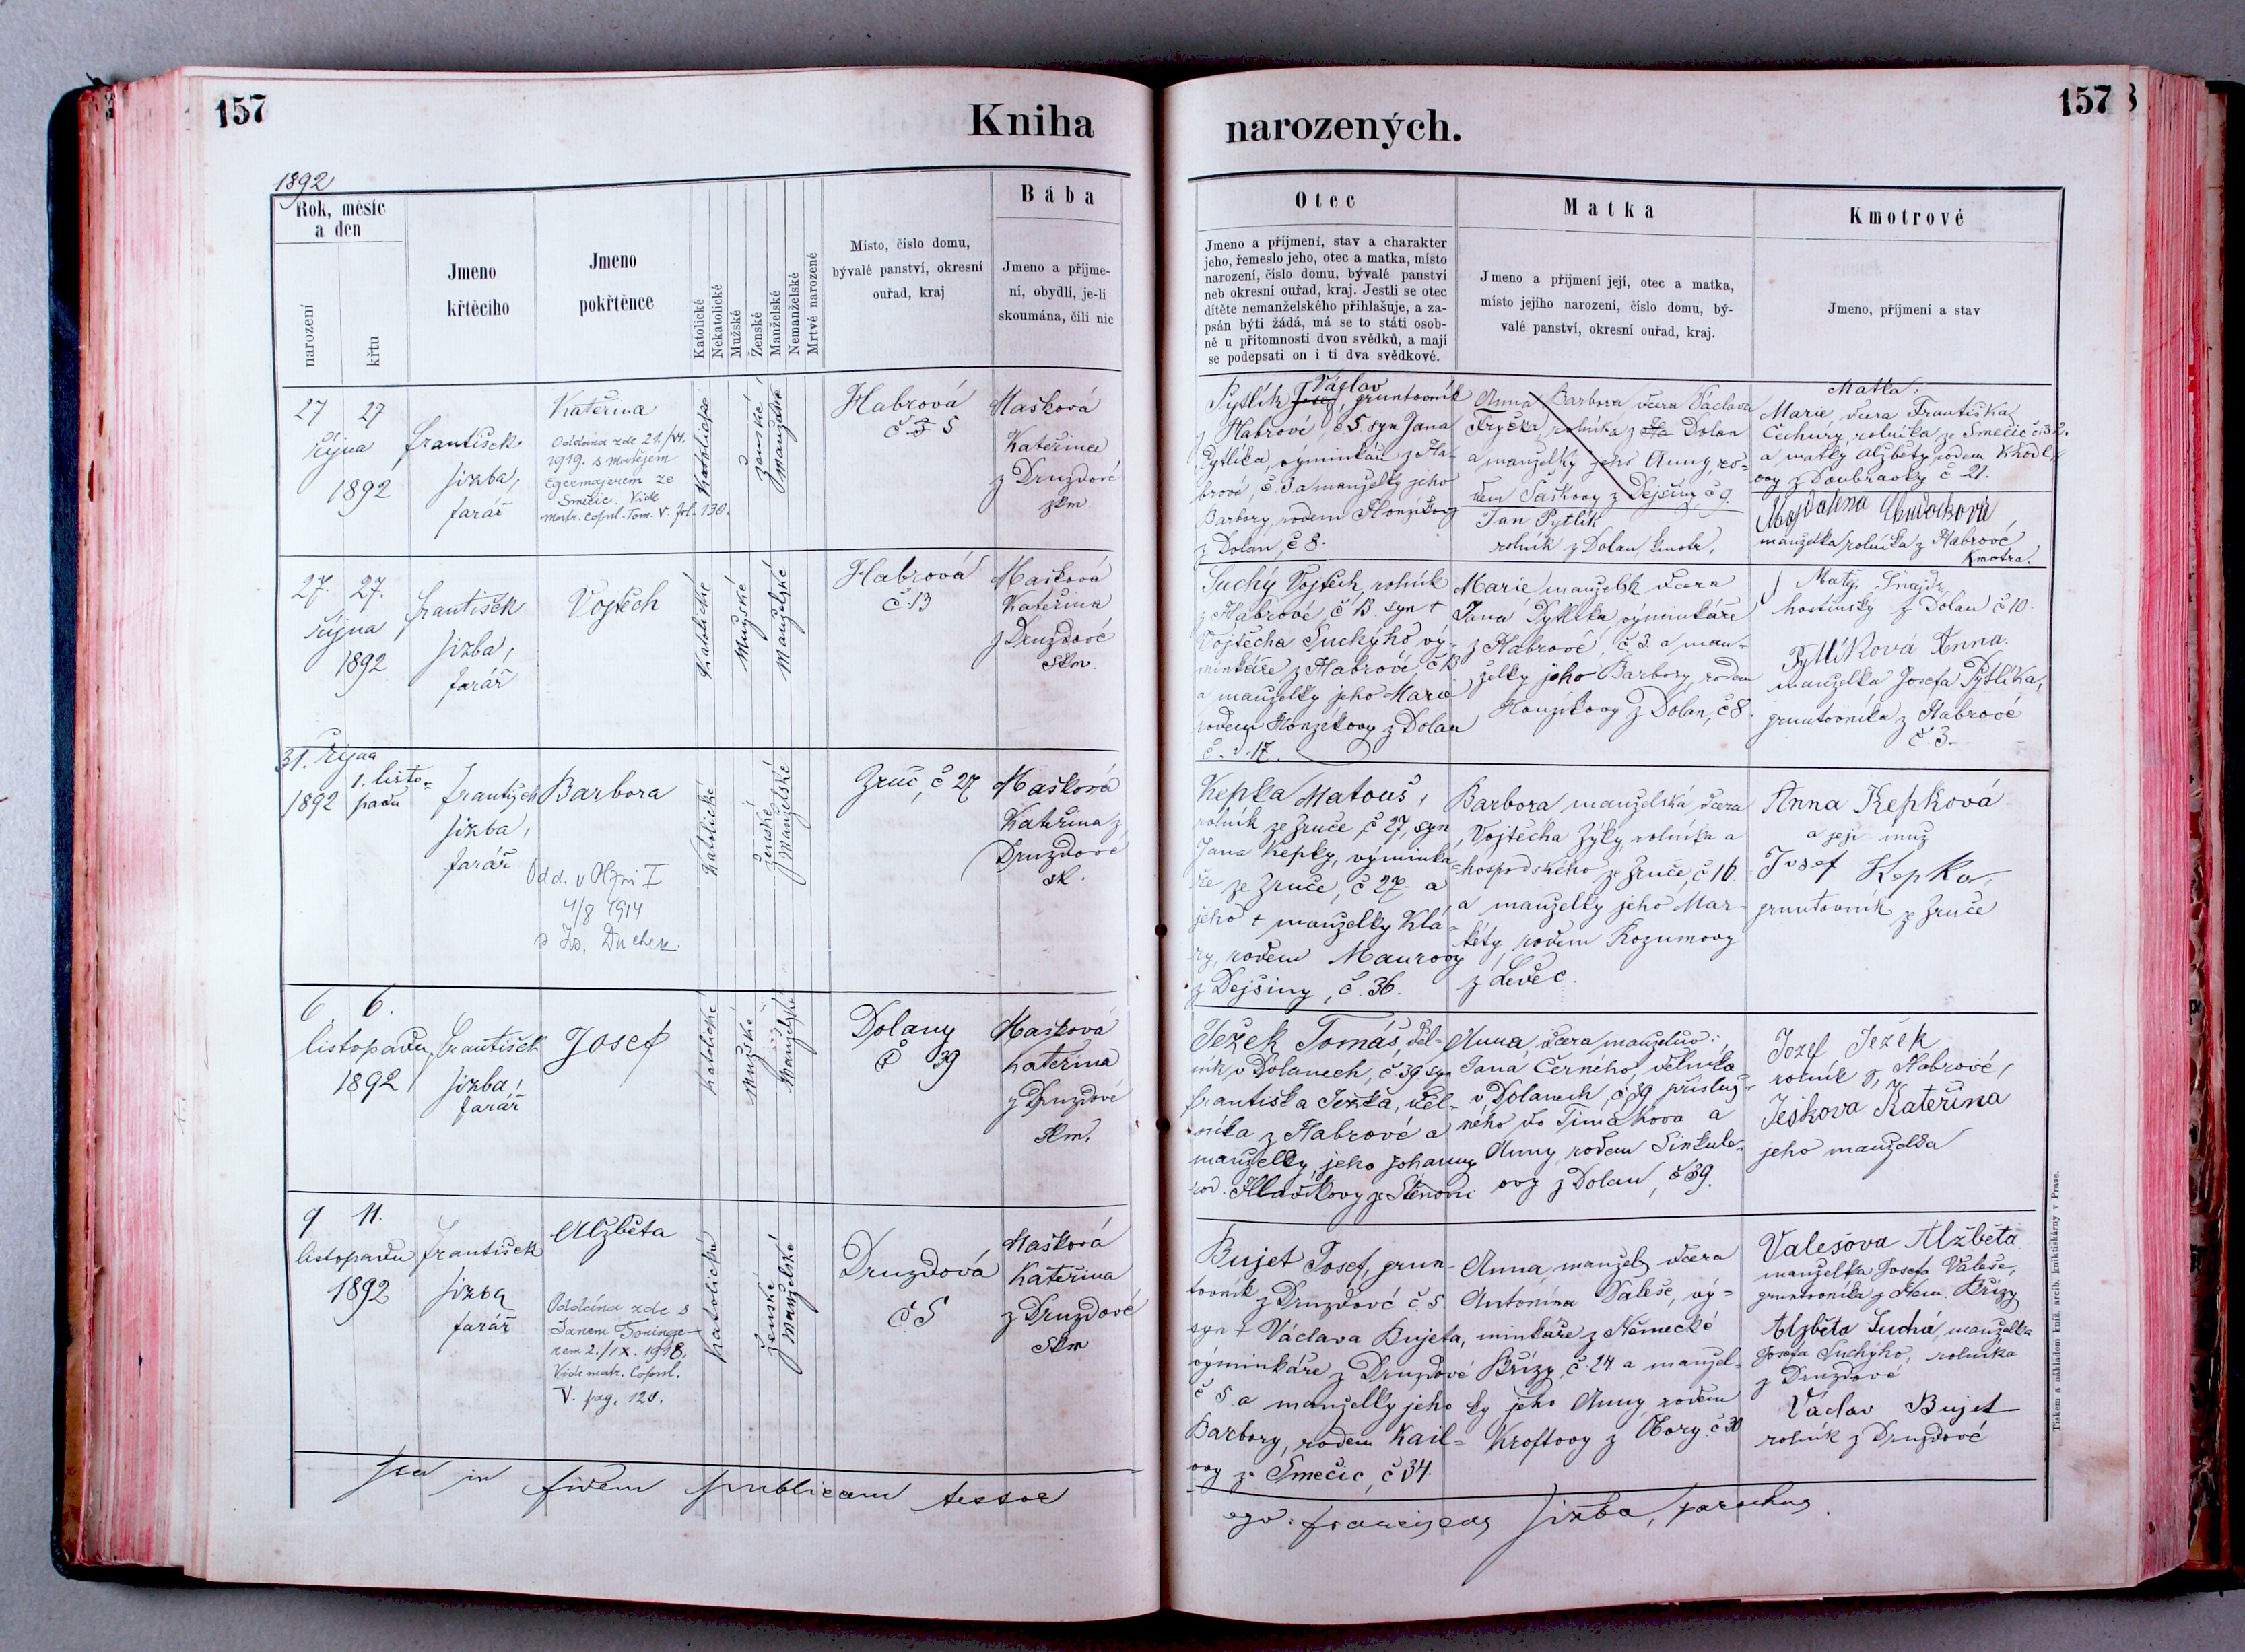 157
Kniha
narozených.
157
1892
Rok, měsíc
a den
narození
křtu
Jmeno
křtěcího
Jmeno
pokřtěnce
Katolické
Nekatolické
Mužské
Ženské
Manželské
Nemanželské
Mrtvě narozené
Místo, číslo domu,
bývalé panství, okresní
ouřad, kraj
Bába
Jmeno a příjme-
ní, obydlí, je-li
skoumána, čili nic
Otec
Jmeno a příjmení, stav a charakter
jeho, řemeslo jeho, otec a matka, místo
narození, číslo domu, bývalé panství
neb okresní ouřad, kraj. Jestli se otec
dítěte nemanželského přihlašuje, a za-
psán býti žádá, má se to státi osob-
ně u přítomnosti dvou svědků, a mají
se podepsati on i ti dva svědkové.
Matka
Jmeno a příjmení její, otec a matka,
místo jejího narození, číslo domu, bý-
valé panství, okresní ouřad, kraj.
Kmotrové
Jmeno, příjmení a stav
27 27
října
1892
František
Jizba,
farář
Kateřina
Oddána zde 21./VI.
1919. s Matějem
Egermajerem ze
Smečic. Vide
matr. copul. Tom. V. fol. 130.
Katolické
ženské
Manželské
Habrová
č 5 5
Mašková
Kateřina
z Druzdové
zkm
Václav
Pytlík Josef, gruntovník
z Habrové, č 5 syn Jana
Pytlíka, výminkáře z Ha-
brové, č. 3 a manželky jeho
Barbory, rodem Honzíkovy
z Dolan, č 8.
Anna Barbora dcera Václava
Tryčka, rolníka z Dolan
a manželky jeho Anny, ro-
dem Saškovy z Dejšiny, č 9.
Jan Pytlík
rolník z Dolan, kmotr,
Matka:
Marie dcera Františka
Čechury, rolníka ze Smečic č 32.
a matky Alžběty, rodem Khodl
ovy z Doubravky č 21.
Magdalena
manželka rolníka z Habrové
Kmotra.
27. 27.
října
1892
František
Jizba,
farář
Vojtěch
Katolické
Mužské
Manželské
Habrová
č. 13
Mašková
Kateřina
z Druzdové
Skm.
Suchý Vojtěch, rolník
z Habrové, č 13. syn †
Vojtěcha Suchýho vý-
minkáře z Habrové, č 13
a manželky jeho Marie
rodem Honzíkovy z Dolan
č. 17.
Marie, manželsk. dcera
Jana Pytlíka výminkáře
z Habrové, č. 3. a man-
želky jeho Barbory, rodem
Honzíkovy z Dolan, č 8.
Matěj Šnajdr
hostinský z Dolan č 10.
Pytlíková Anna.
manželka Josefa Pytlíka,
gruntovníka z Habrové
č. 3.
31. října
1. listo-
1892 padu
František
Jizba,
farář
Barbora
Odd. v Plzni I
4/8 1914
s Duchek.
Katolické
ženské
Manželské
Zruč, č 27
Mašková
Kateřina z
Druzdové
sk.
Kepka Matouš,
rolník ze Zruče, č 27, syn
Jana Kepky, výminká-
ře ze Zruče, č 27. a
jeho † manželky Klá-
ry, rodem Maurovy
z Dejšiny, č. 36.
Barbora, manželská dcera
Vojtěcha Zýky, rolníka a
hospodského ze Zruče, č 16.
a manželky jeho Mar-
kéty, rodem Rozumovy
z Ledec.
Anna Kepková
a její muž
Josef Kepka,
gruntovník ze Zruče
6. 6.
listopadu
1892
František
Jizba,
farář
Josef
Katolické
Mužské
Manželské
Dolany
č 39
Mašková
Kateřina
z Druzdové
Skm.
Ježek Tomáš, děl-
ník v Dolanech, č 39 syn
Františka Ježka, děl-
níka z Habrové a
manželky jeho Johanny
rod. Hlavičkovy ze Stěnovic
Anna dcera manželův:
Jana Černého, dělníka
v Dolanech, č 39 přísluš-
ného do Timákova a
Anny, rodem Sinkule-
ovy z Dolan, č 39.
Jozef Ježek
rolník z Habrové,
Ješkova Kateřina
jeho manželka
9 11.
listopadu
1892
František
Jizba
farář
Alžběta
Oddána zde s
Janem Toninge-
rem 2./IX. 1918,
Vide matr. Copul.
V. pag. 120.
Katolické
ženské
Manželské
Druzdová
č. 5
Mašková
Kateřina
z Druzdové
Skm
Bujet Josef, grun-
tovník z Druzdové č. 5.
syn † Václava Bujeta,
výminkáře z Druzdové
č 5 a manželky jeho
Barbory, rodem Kail-
ovy ze Smečic, č 34.
Anna, manžel. dcera
Antonína Valeše, vý-
minkáře z Německé
Břízy, č 24 a manžel-
ky jeho Anny rodem
Kroftovy z Hory č 30
Valešova Alžběta
manželka Josefa Valeše,
gruntovníka z Něm. Břízy
Alžběta Suchá, manželka
Josefa Suchýho, rolníka
z Druzdové
Václav Bujet
rolník z Druzdové
Ita in fidem publicam testor
ego: Franciscus Jizba, parochus.
Tiskem a nákladem kníž. arcib. knihtiskárny v Praze.